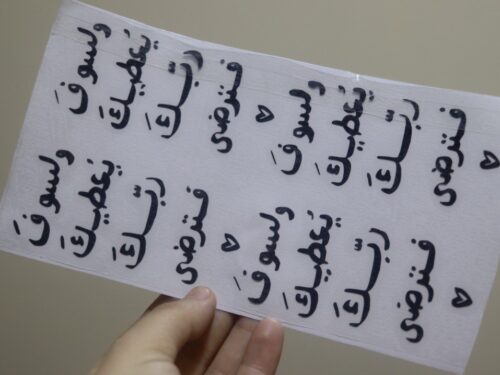 ولسوفَ
يُعطيكَ
ربّكَ
فترضى
ولسوفَ
يُعطيكَ
ربّكَ
فترضى
ولسوفَ
يُعطيكَ
ربّكَ
فترضى
ولسوفَ
يُعطيكَ
ربّكَ
فترضى